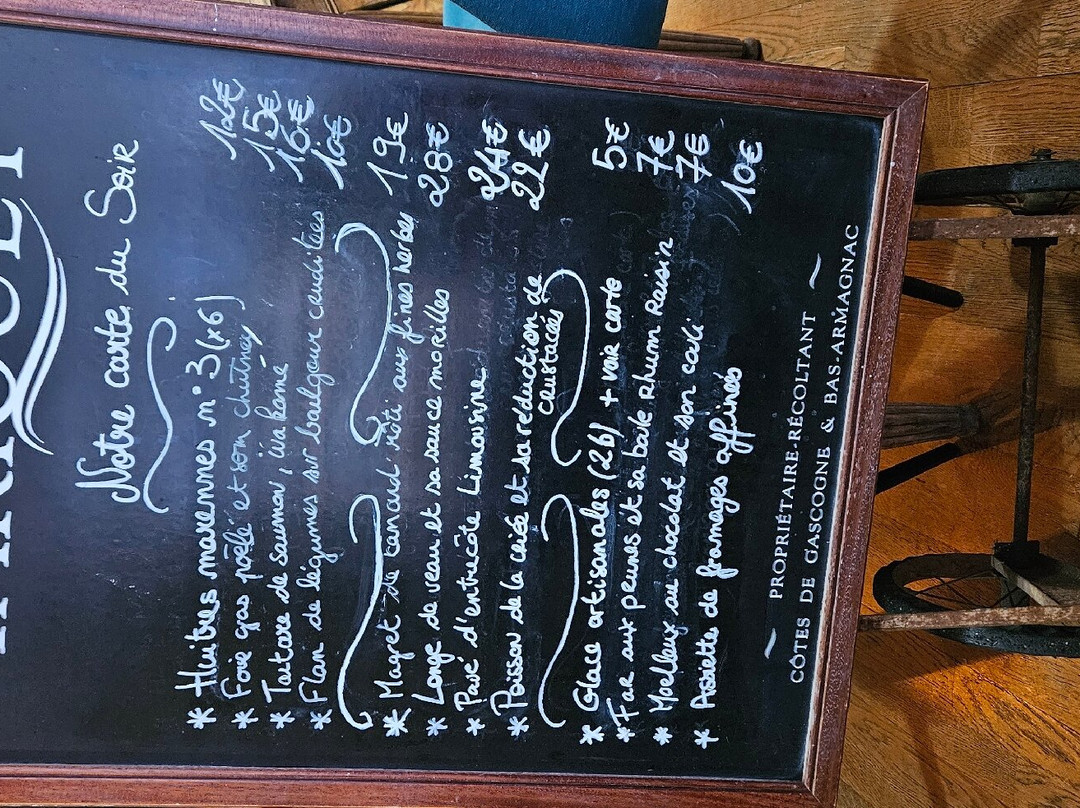 Notre carte du Soir
* Huitres marennes n°3 (x6) 12€
* Foie gras poêlé et son chutney 15€
* Tartare de saumon, wakamé 16€
* Flan de légumes sur boulgour crudités 10€
* Magret de canard rôti aux fines herbes 19€
* Longe de veau et sa sauce morilles 28€
* Pavé d'entrecôte Limousine 24€
* Poisson de la criée et sa réduction de 22€
crustacés
* Glace artisanales (2b) + voir carte 5€
* Far aux prunes et sa boule Rhum Raisin 7€
* Moelleux au chocolat et son coeli 7€
* Assiette de fromages affinés 10€
PROPRIÉTAIRE-RÉCOLTANT
CÔTES DE GASCOGNE & BAS-ARMAGNAC